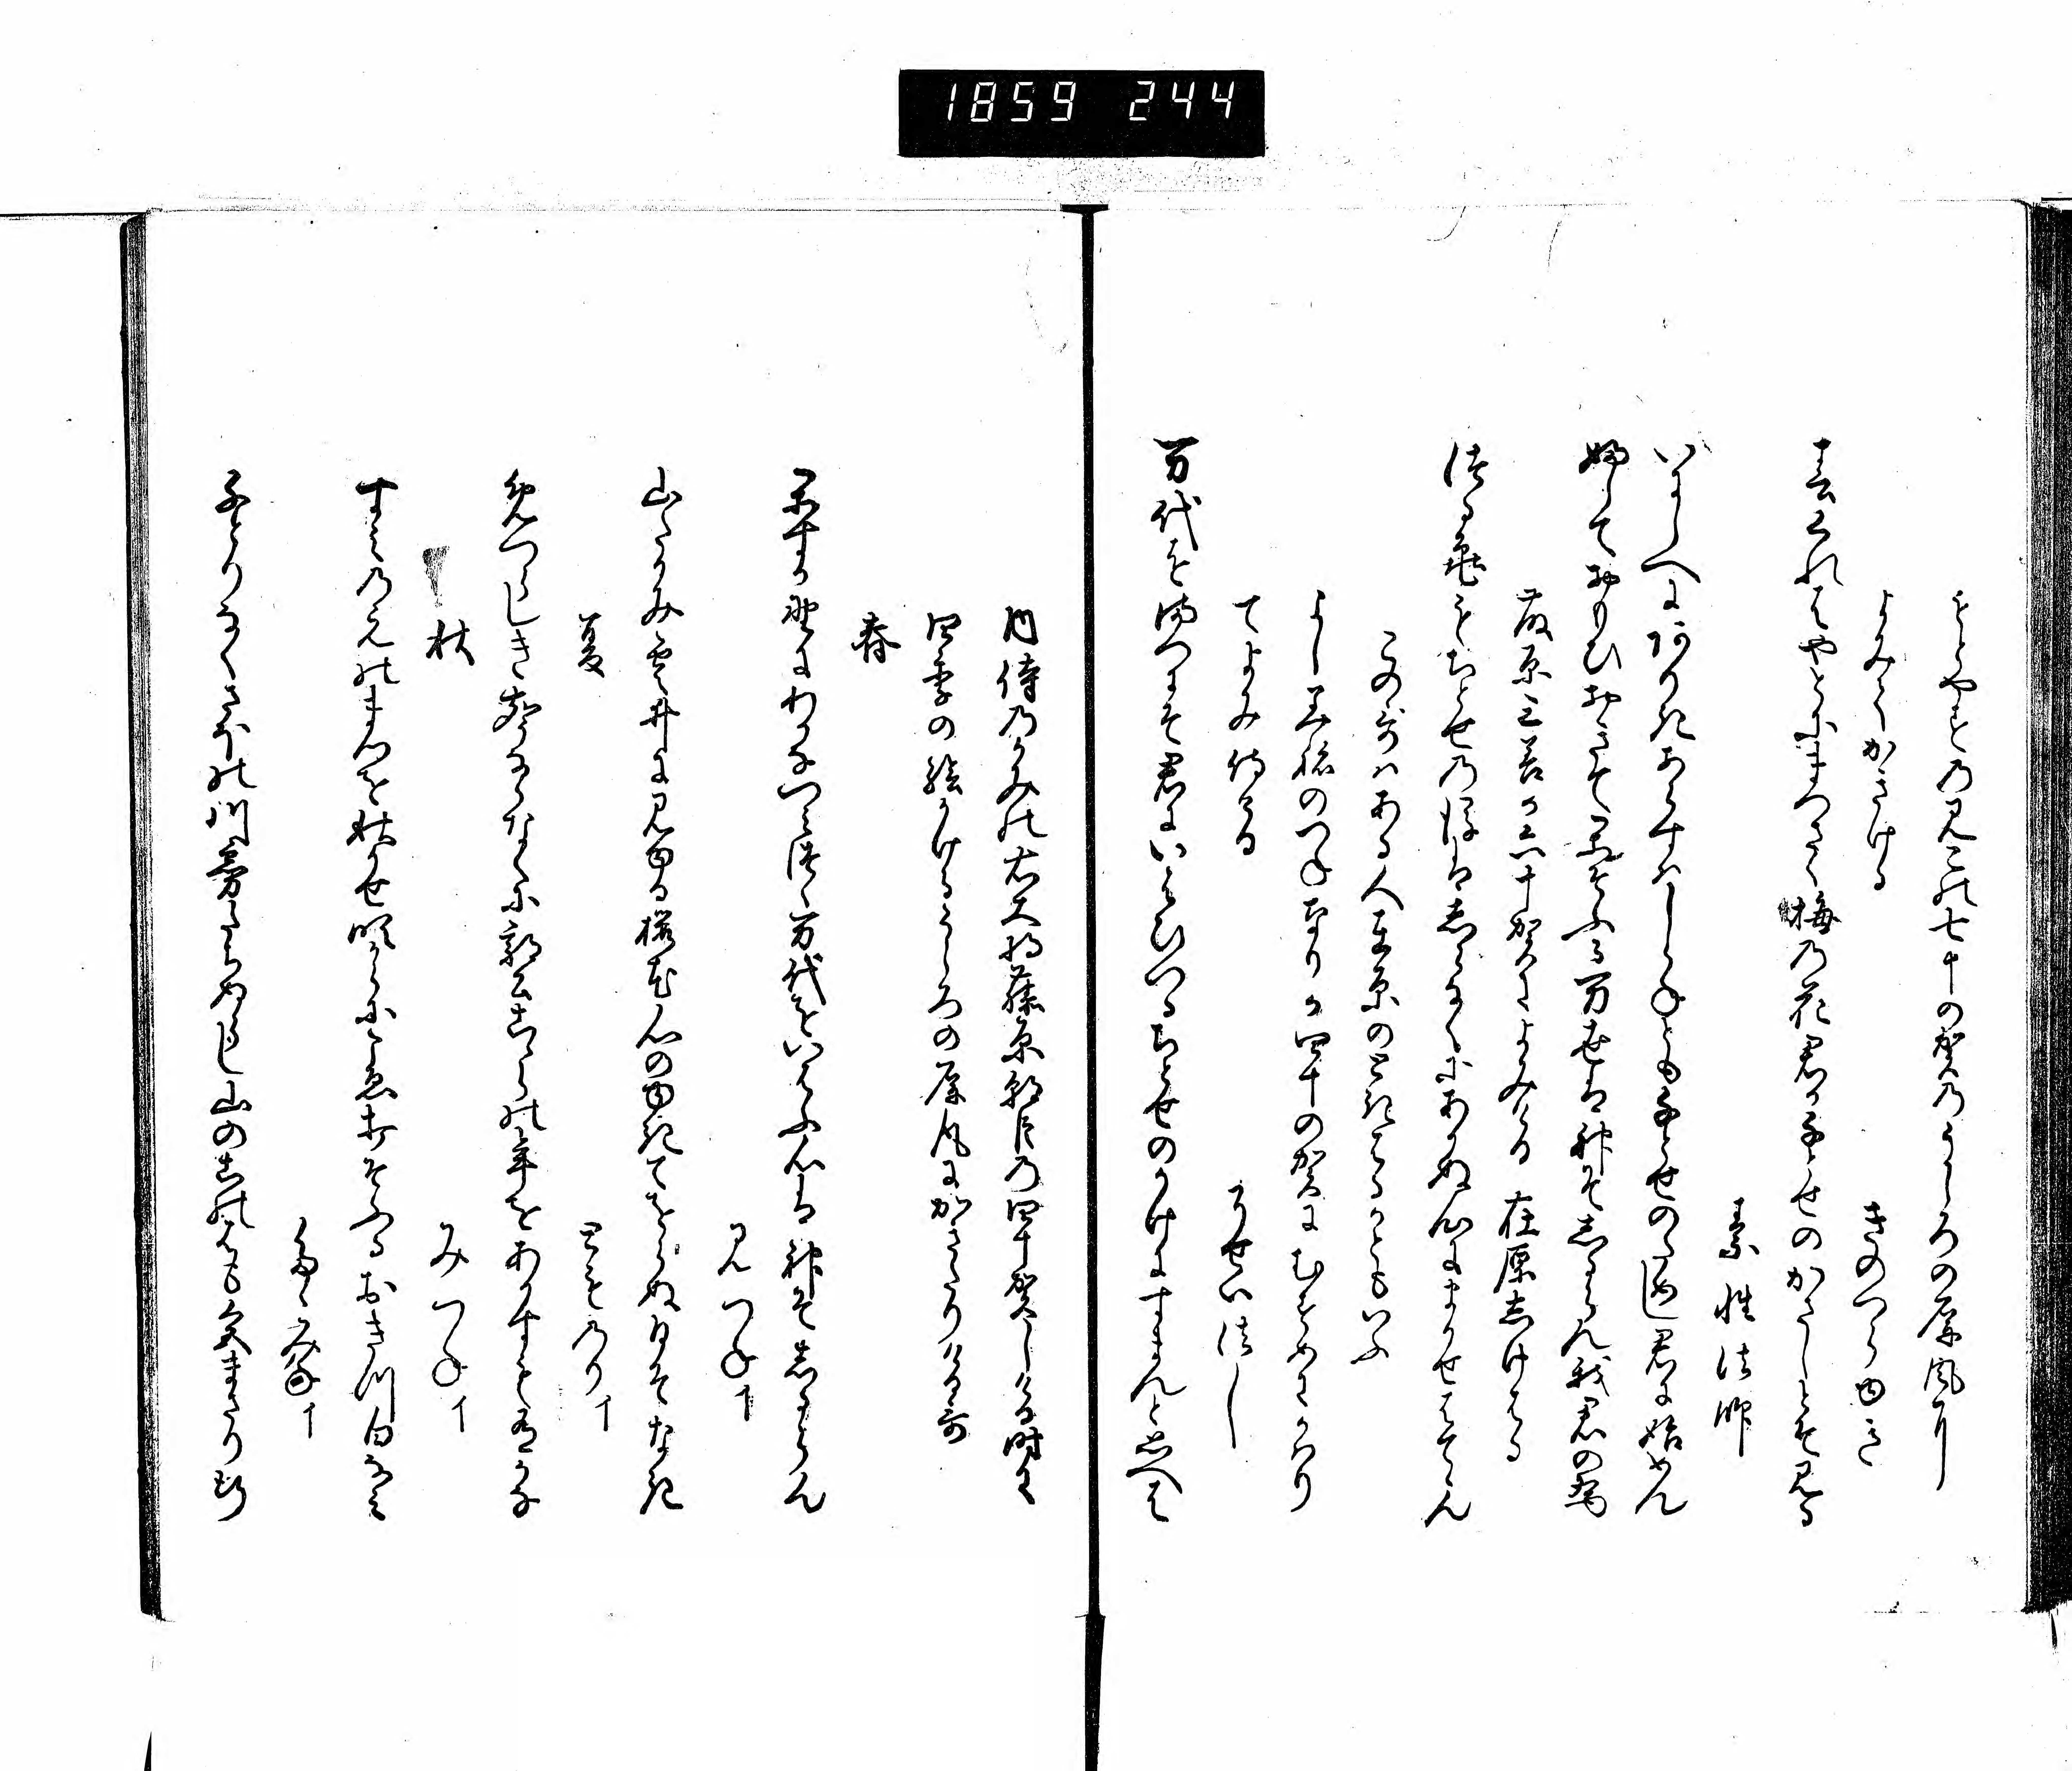 1859 244
もとやすのみこの七十の賀のうしろの屏風に
よみてかきける
きのつらゆき
春くれはやとにまつさく梅の花君か千とせのかさしとそ見る
素性法師
いにしへにありきあらすはしらねとも千とせのためし君に始めん
ふしておもひおきてかそふる万世は神そしるらん我君の為
藤原三善か六十賀によみける
在原しけはる
鶴亀もちとせの後はしらなくにあかぬ心にまかせはててん
この哥はある人在原のときはるかともいふ
よしみねのつねなりか四十の賀にむすめにかはり
てよみ侍る
そせい法し
万代を松にそ君をいはひつるちとせのかけにすまんと思へは
内侍のかみの右大将藤原朝臣の四十賀しける時に
四季の絵かけるうしろの屏風にかきたりける哥
春
かすか野にわかなつみつつ万代をいはふ心は神そしるらん
みつね イ
山たかみ雲井に見ゆる桜花心のゆきてをらぬ日そなき
夏
とものり イ
めつらしき声ならなくに郭公ここらの年をあかすも有かな
秋
みつね イ
すみのえのまつを秋かせ吹からにこゑ打そふるおきつ白なみ
たたみね イ
千とりなくさほの川霧たちぬらし山のこのはも色まさり行